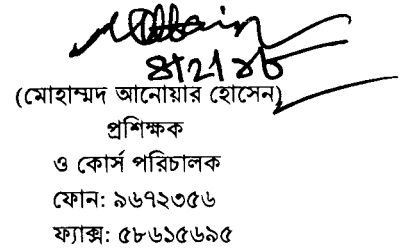 (মোহাম্মদ আনোয়ার হোসেন)
প্রশিক্ষক
ও কোর্স পরিচালক
ফোন: ৯৬৭২৩৫৬
ফ্যাক্স: ৫৮৬১৫৬৯৫